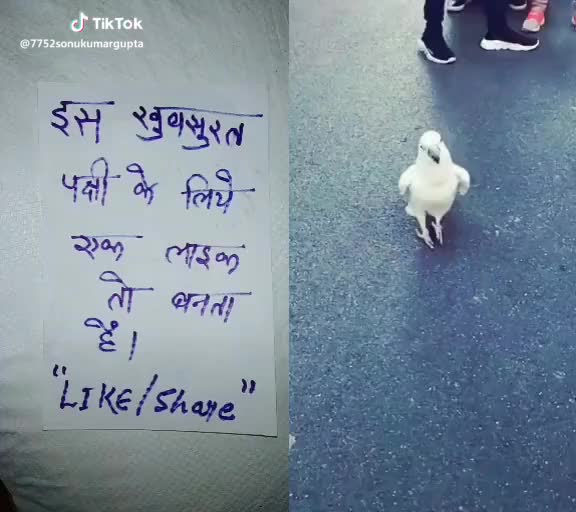 TikTok
@7752sonukumargupta
इस खुबसुरत
पक्षी के लिये
एक लाइक
तो बनता
हैं।
"LIKE/Share"